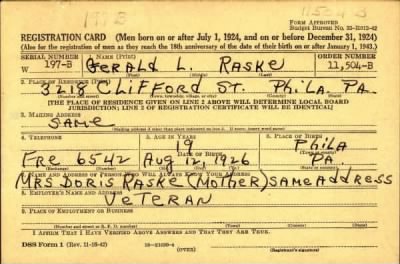 197B
REGISTRATION CARD (Men born on or after July 1, 1924, and on or before December 31, 1924)
FORM APPROVED
Budget Bureau No. 33-R012-42
(Also for the registration of men as they reach the 18th anniversary of the date of their birth on or after January 1, 1943.)
SERIAL NUMBER 1. NAME (Print) ORDER NUMBER
197-B Gerald L. Raske 11,504-B
(First) (Middle) (Last)
2. PLACE OF RESIDENCE (Print)
3218 Clifford ST. Phila. Pa.
[THE PLACE OF RESIDENCE GIVEN ON LINE 2 ABOVE WILL DETERMINE LOCAL BOARD
JURISDICTION; LINE 2 OF REGISTRATION CERTIFICATE WILL BE IDENTICAL]
3. MAILING ADDRESS
Same
4. TELEPHONE 5. AGE IN YEARS 6. PLACE OF BIRTH
19 Phila
Fre 6542 Aug 12, 1926 Pa.
(Exchange) (Number) (Mo.) (Day) (Yr.) (State or country)
7. NAME AND ADDRESS OF PERSON WHO WILL ALWAYS KNOW YOUR ADDRESS
Mrs Doris Raske (Mother) same address
8. EMPLOYER'S NAME AND ADDRESS
Veteran
9. PLACE OF EMPLOYMENT OR BUSINESS
I AFFIRM THAT I HAVE VERIFIED ABOVE ANSWERS AND THAT THEY ARE TRUE.
DSS Form 1 (Rev. 11-16-42) (OVER) (Registrant's signature)